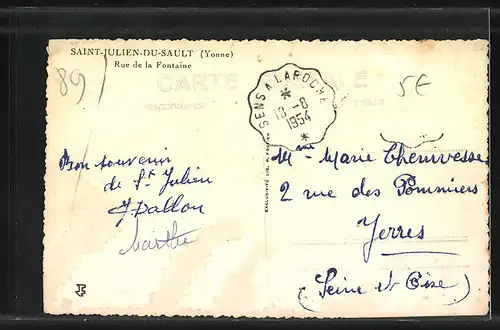 SAINT-JULIEN-DU-SAULT (Yonne)
Rue de la Fontaine
89
CARTE POSTALE
SENS A LAROCHE
13 -8
1954
5E
Bon souvenir
de St Julien
Mme Marie
2 rue des Pommiers
Yerres
(Seine et Oise)